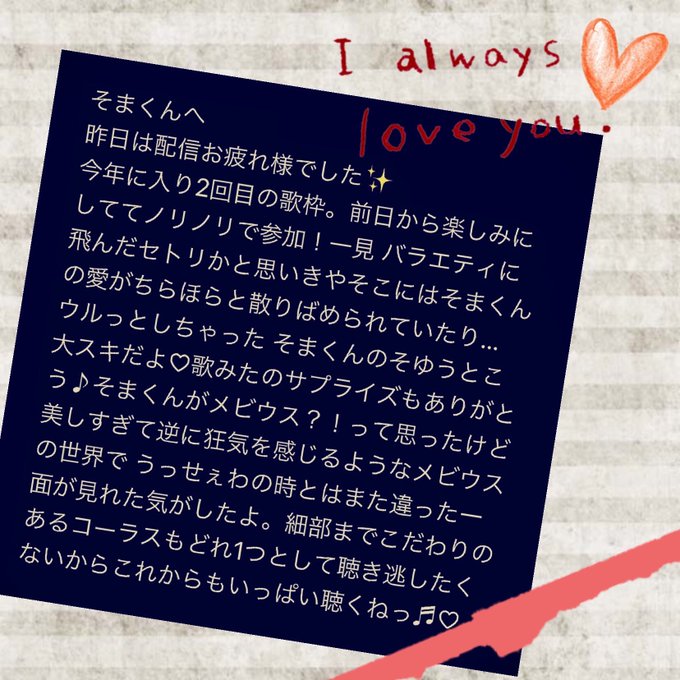 I always
love you.
そまくんへ
昨日は配信お疲れ様でした✨
今年に入り2回目の歌枠。前日から楽しみに
しててノリノリで参加！一見 バラエティに
飛んだセトリかと思いきやそこにはそまくん
の愛がちらほらと散りばめられていたり...
ウルっとしちゃった そまくんのそゆうとこ
大スキだよ♡歌みたのサプライズもありがと
う♪そまくんがメビウス？！って思ったけど
美しすぎて逆に狂気を感じるようなメビウス
の世界で うっせぇわの時とはまた違った一
面が見れた気がしたよ。細部までこだわりの
あるコーラスもどれ1つとして聴き逃したく
ないからこれからもいっぱい聴くねっ♬♡